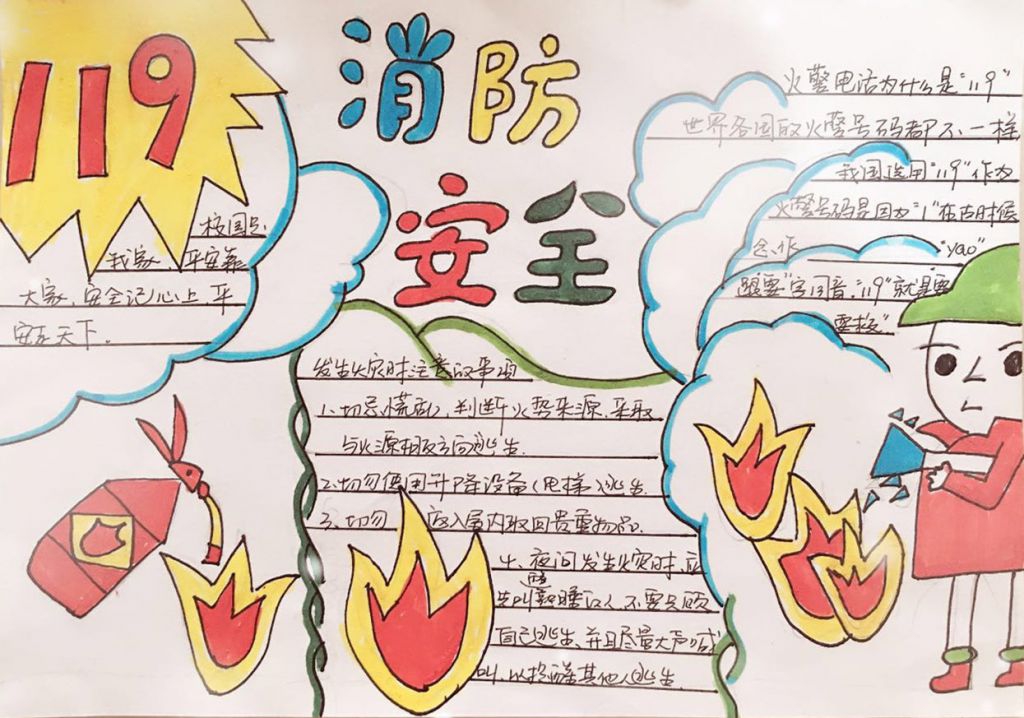 119
消防
安全
校园是
我家,平安靠
大家,安全记心上,平
安在天下。
火警电话为什么是"119"
世界各国的火警号码都不一样
我国选用"119"作为
火警号码是因为"1"在古时候
念作"yao"
跟"要"字同音,"119"就是要
要救"
发生火灾时注意的事项
1.切忌慌乱,判断火势来源,采取
与火源相反方向逃生.
2.切勿使用升降设备(电梯)逃生.
3.切勿 返入屋内取回贵重物品.
4.夜间发生火灾时,应
先叫醒熟睡的人,不要只顾
自己逃生,并且尽量大声喊
叫,以提醒其他人逃生.